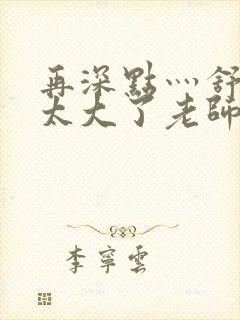 再深點灬舒
太大了老師
李寧雲